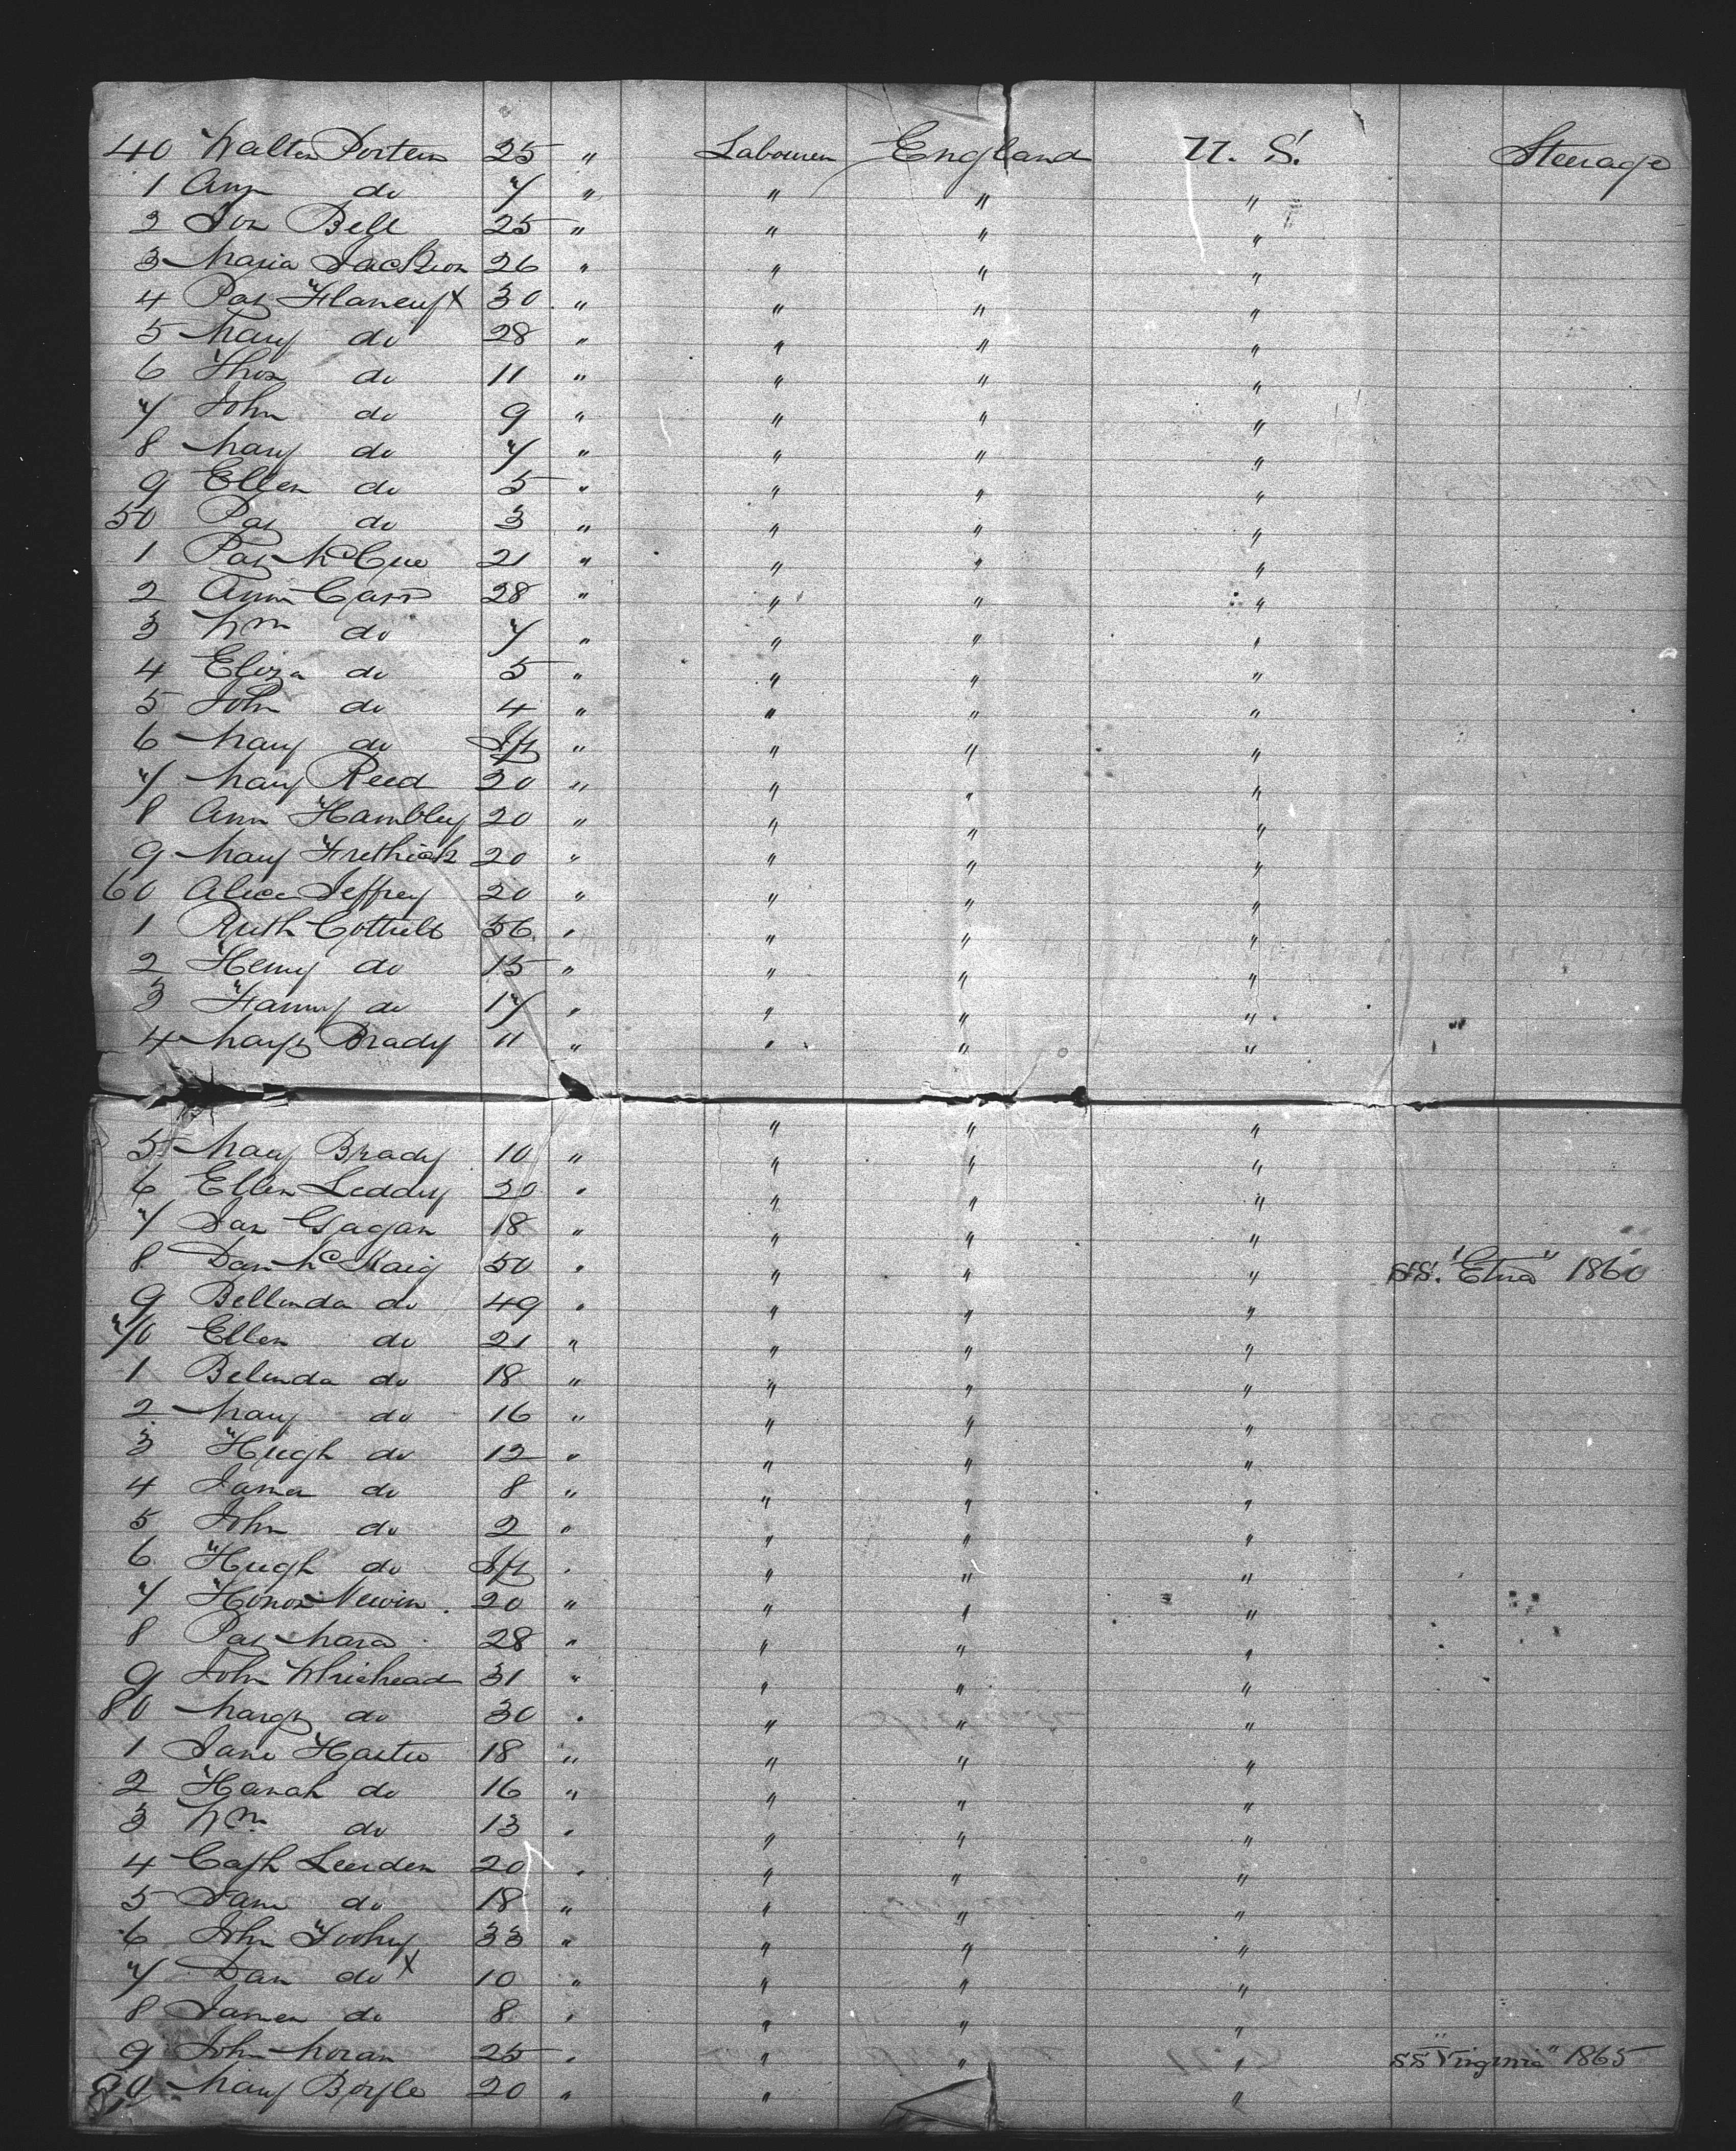 40 Walter Porteus 25 " Labourer England U. S. Steerage
1 Ann do 7 " " " "
2 Jos Bell 25 " " " "
3 Maria Jackson 26 " " " "
4 Pat Flanery X 30 " " " "
5 Mary do 28 " " " "
6 Thos do 11 " " " "
7 John do 9 " " " "
8 Mary do 7 " " " "
9 Ellen do 5 " " " "
50 Pat do 3 " " " "
1 Pat McCue 21 " " " "
2 Ann Cass 28 " " " "
3 Wm do 7 " " " "
4 Eliza do 5 " " " "
5 John do 4 " " " "
6 Mary do Ift " " " "
7 Mary Reed 20 " " " "
8 Ann Hambley 20 " " " "
9 Mary 20 " " " "
60 Alice Jeffrey 20 " " " "
1 Ruth Cottrell 36 " " " "
2 Henry do 15 " " " "
3 Fanny do 17 " " " "
4 Margt Brady 11 " " " "
" " "
5 Mary Brady 10 " " " "
6 Ellen Leddy 20 " " " "
7 Jas Gagan 18 " " " "
8 Dan McKaig 50 " " " " S.S. "Etna" 1860
9 Bellinda do 49 " " " "
70 Ellen do 21 " " " "
1 Belinda do 18 " " " "
2 Mary do 16 " " " "
3 Hugh do 12 " " " "
4 James do 8 " " " "
5 John do 2 " " " "
6 Hugh do Ift " " " "
7 Honor Newin 20 " " " "
8 Pat Mara 28 " " " "
9 John Whiehead 31 " " " "
80 Margt do 30 " " " "
1 Jane 18 " " " "
2 Hanah do 16 " " " "
3 Wm do 13 " " " "
4 Cath 20 " " " "
5 Jane do 18 " " " "
6 John Toohy 33 " " " "
7 Dan do X 10 " " " "
8 James do 8 " " " "
9 John Moran 25 " " " " SS "Virginia" 1865
90 Mary Boyle 20 " " "